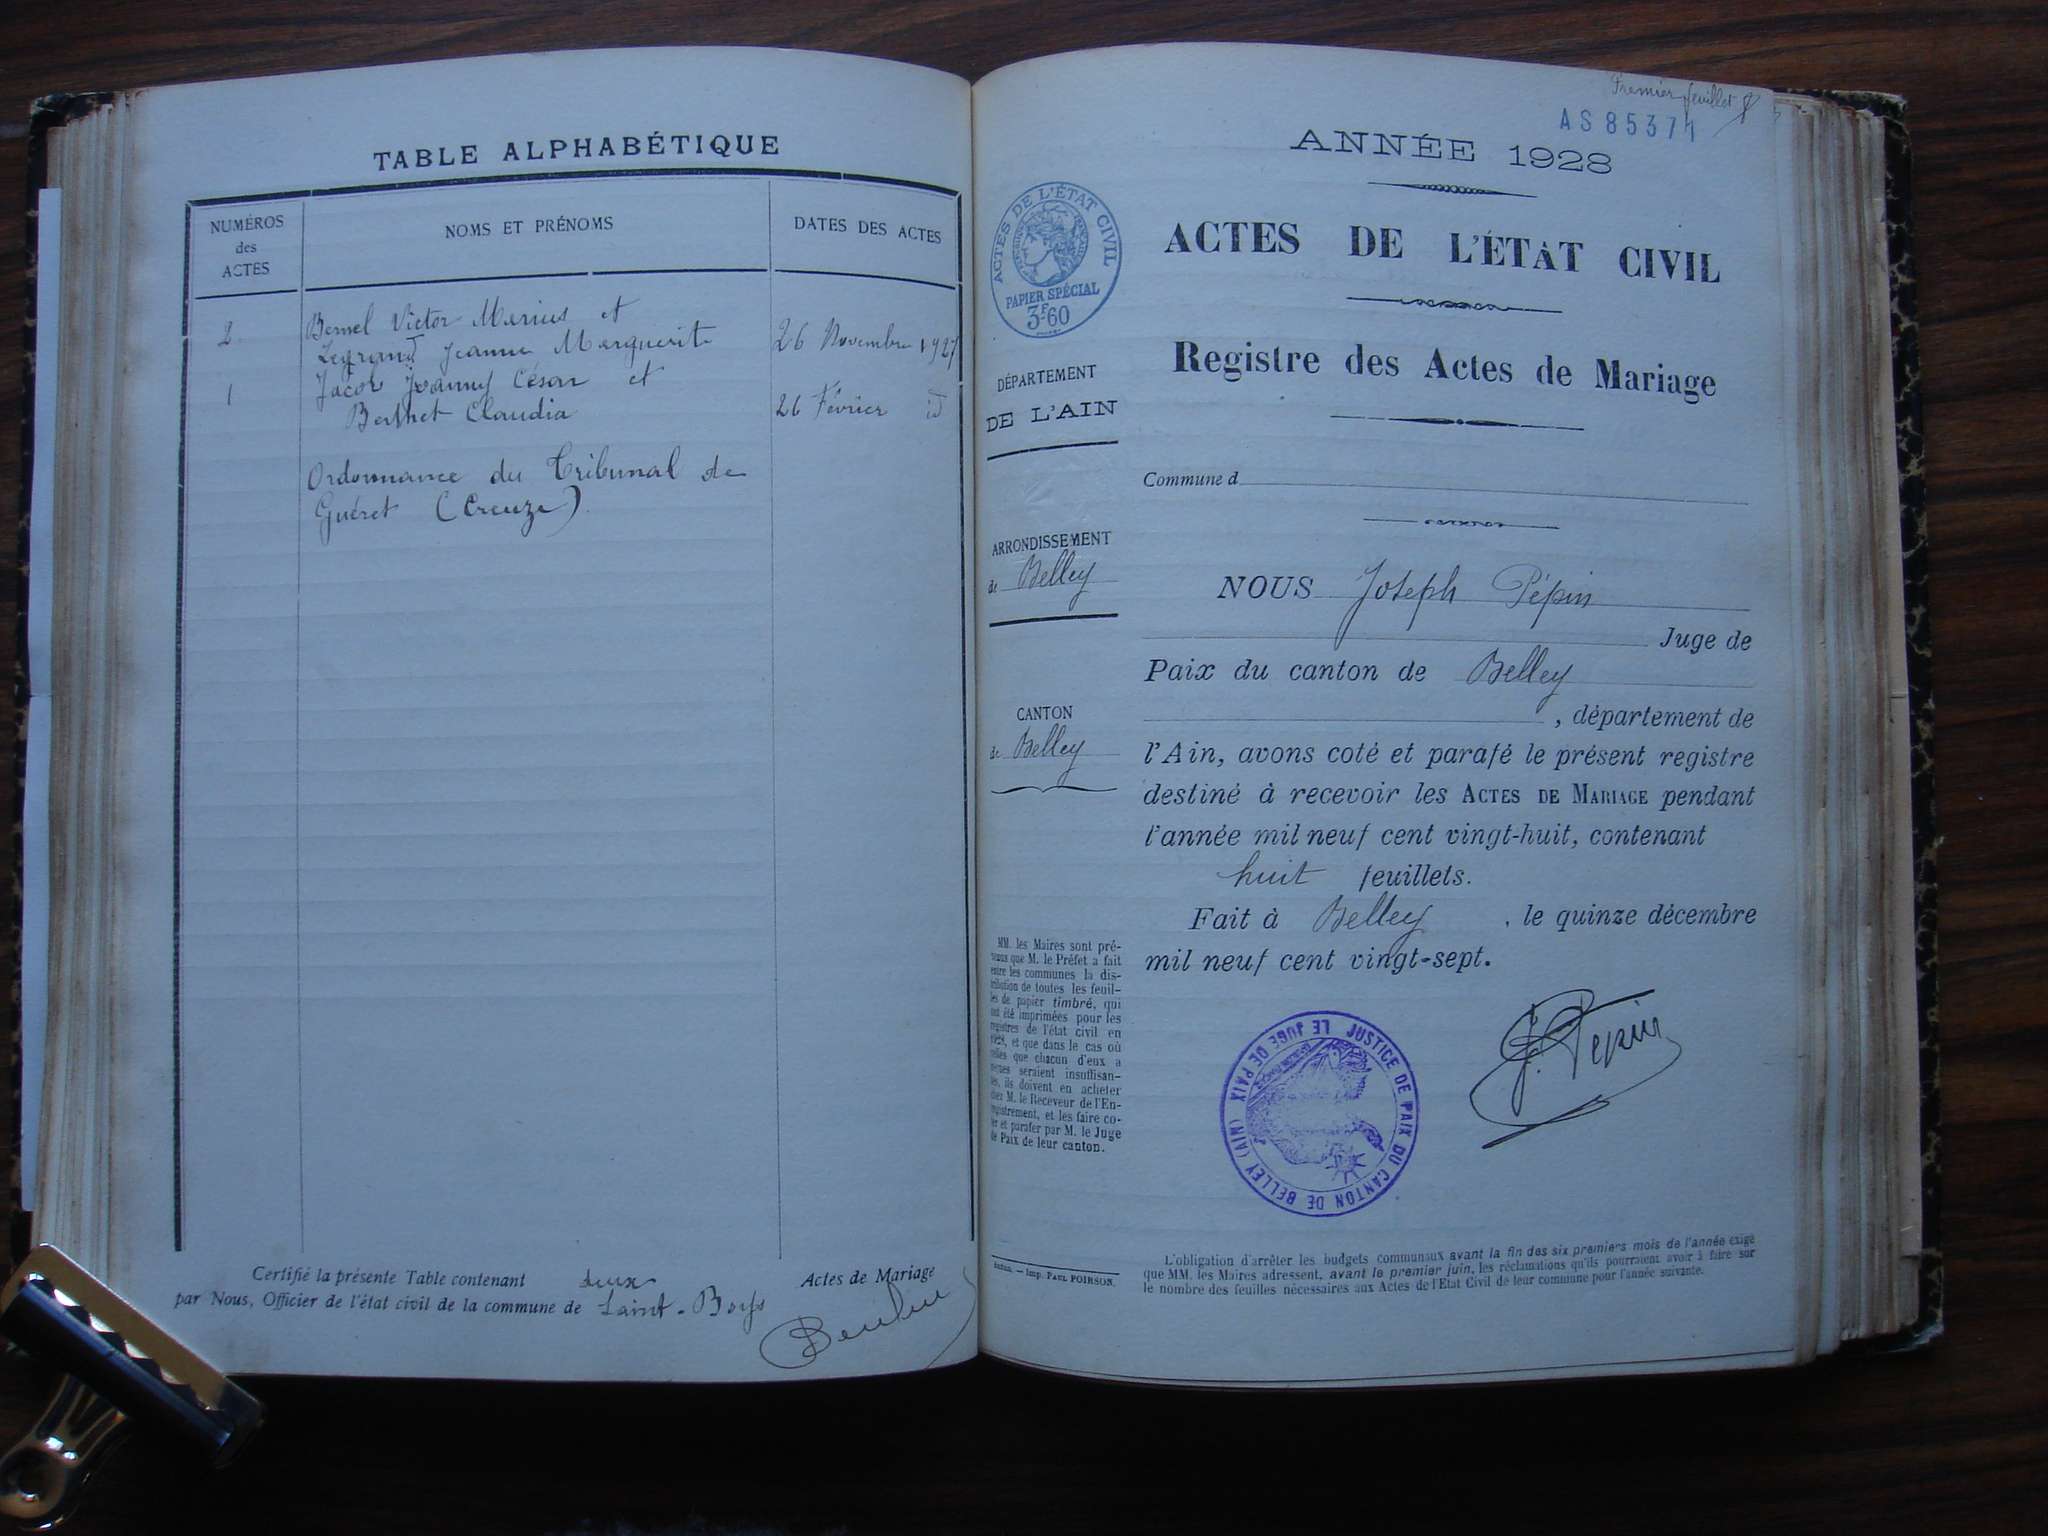 TABLE ALPHABÉTIQUE
NUMÉROS
des
ACTES
NOMS ET PRÉNOMS
DATES DES ACTES
2 Bernel Victor Marius et
Legrand Jeanne Marguerite 26 Novembre 1927
1 Jacob Joanny César et
Berthet Claudia 26 Février id
Ordonnance du Tribunal de
Guéret (Creuze)
Certifié la présente Table contenant deux Actes de Mariage
par Nous, Officier de l'état civil de la commune de Saint-Boys
Premier feuillet
AS 85371
ANNÉE 1928
ACTES DE L'ÉTAT CIVIL
PAPIER SPÉCIAL
3F60
ACTES DE L'ÉTAT CIVIL
Registre des Actes de Mariage
DÉPARTEMENT
DE L'AIN
ARRONDISSEMENT
de Belley
CANTON
de Belley
MM. les Maires sont pré-
venus que M. le Préfet a fait
entre les communes la dis-
tribution de toutes les feuil-
les de papier timbré, qui
ont été imprimées pour les
registres de l'état civil en
1928, et que dans le cas où
celles que chacun d'eux a
reçues seraient insuffisan-
tes, ils doivent en acheter
chez M. le Receveur de l'En-
registrement, et les faire co-
ter et parafer par M. le Juge
de Paix de leur canton.
Imp. PAUL POIRSON.
Commune d
NOUS Joseph Pépin
Juge de
Paix du canton de Belley
, département de
l'Ain, avons coté et parafé le présent registre
destiné à recevoir les ACTES DE MARIAGE pendant
l'année mil neuf cent vingt-huit, contenant
huit feuillets.
Fait à Belley, le quinze décembre
mil neuf cent vingt-sept.
JUSTICE DE PAIX DU CANTON DE BELLEY (AIN) LE JUGE DE PAIX
J. Pépin
L'obligation d'arrêter les budgets communaux avant la fin des six premiers mois de l'année exige
que MM. les Maires adressent, avant le premier juin, les réclamations qu'ils pourraient avoir à faire sur
le nombre des feuilles nécessaires aux Actes de l'Etat Civil de leur commune pour l'année suivante.